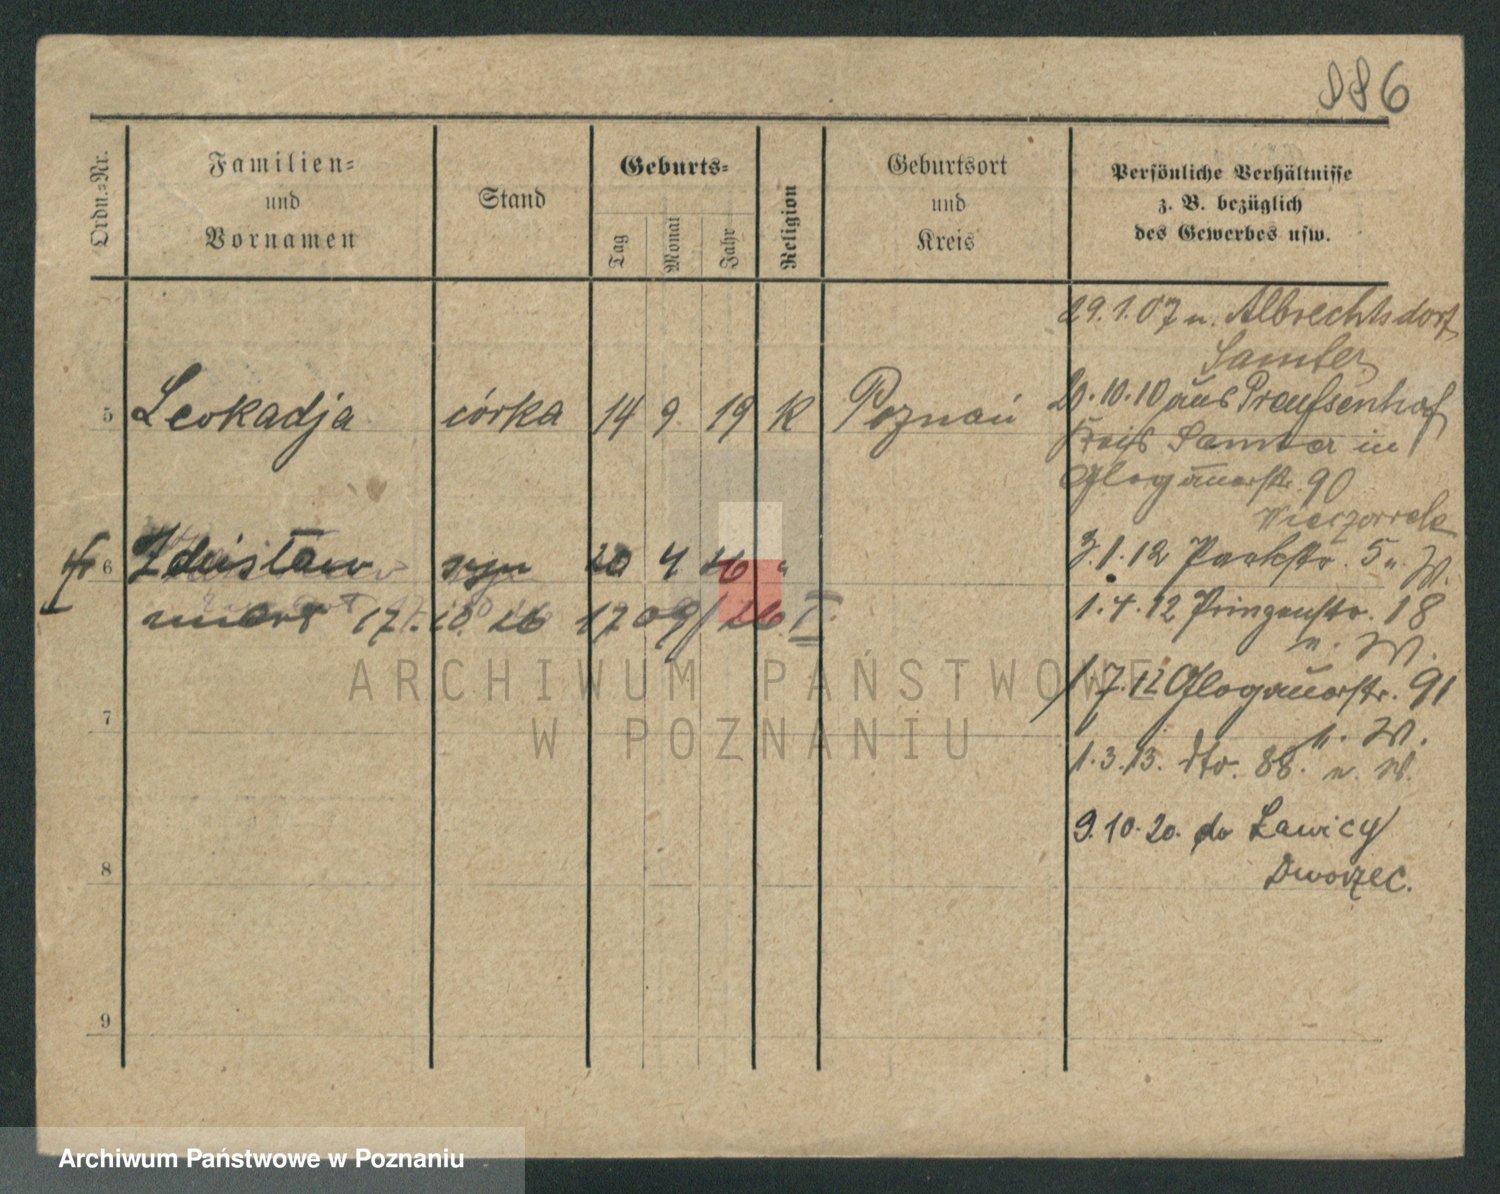 886
Ordn.-Nr.
Familien-
und
Vornamen
Stand
Geburts-
Tag
Monat
Jahr
Religion
Geburtsort
und
Kreis
Persönliche Verhältnisse
z. B. bezüglich
des Gewerbes usw.
29.1.07 n. Albrechtsdorf
Samter
5 Leokadja córka 14 9 19 K Poznań
20.10.10 aus
Kreis Samter in
Glogauerstr. 90
Wieczorek
6 Zdzisław syn 20 4 26 "
3.1.12 Parkstr. 5 n. W.
umarł 17. 26 17 09/26 I
1.4.12 Prinzenstr. 18
n. W.
1.7.12 Glogauerstr. 91
n. W.
7
1.3.13. dto. 88. n. W.
9.10.20. do Ławicy
Dworzec.
8
9
ARCHIWUM PAŃSTWOWE
W POZNANIU
Archiwum Państwowe w Poznaniu